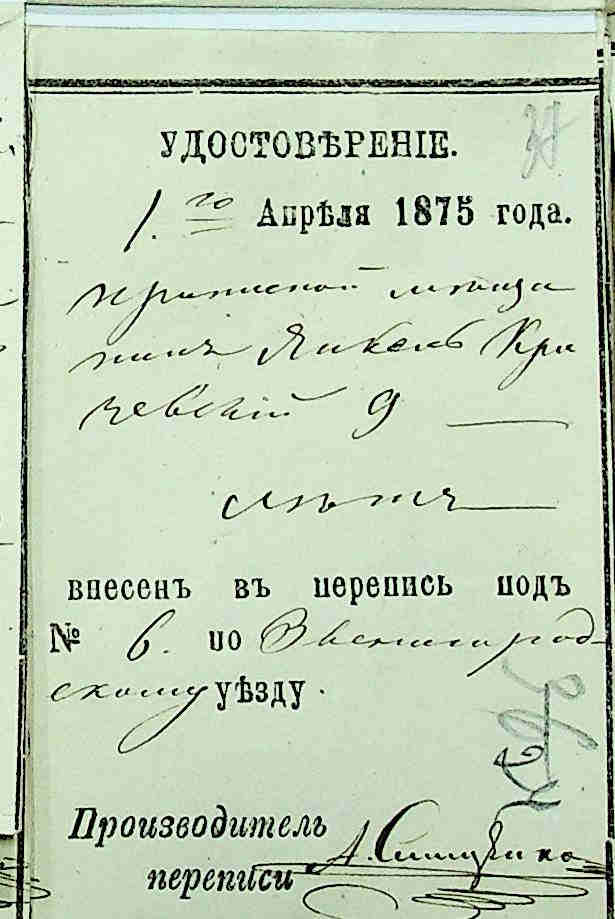 УДОСТОВѢРЕНІЕ.
1.го Апрѣля 1875 года.
мѣща
нинъ Янкель Кри
чевскій 9
лѣтъ
внесенъ въ перепись подъ
№ 6. по Звенигород-
скому уѣзду.
Производитель
переписи А.